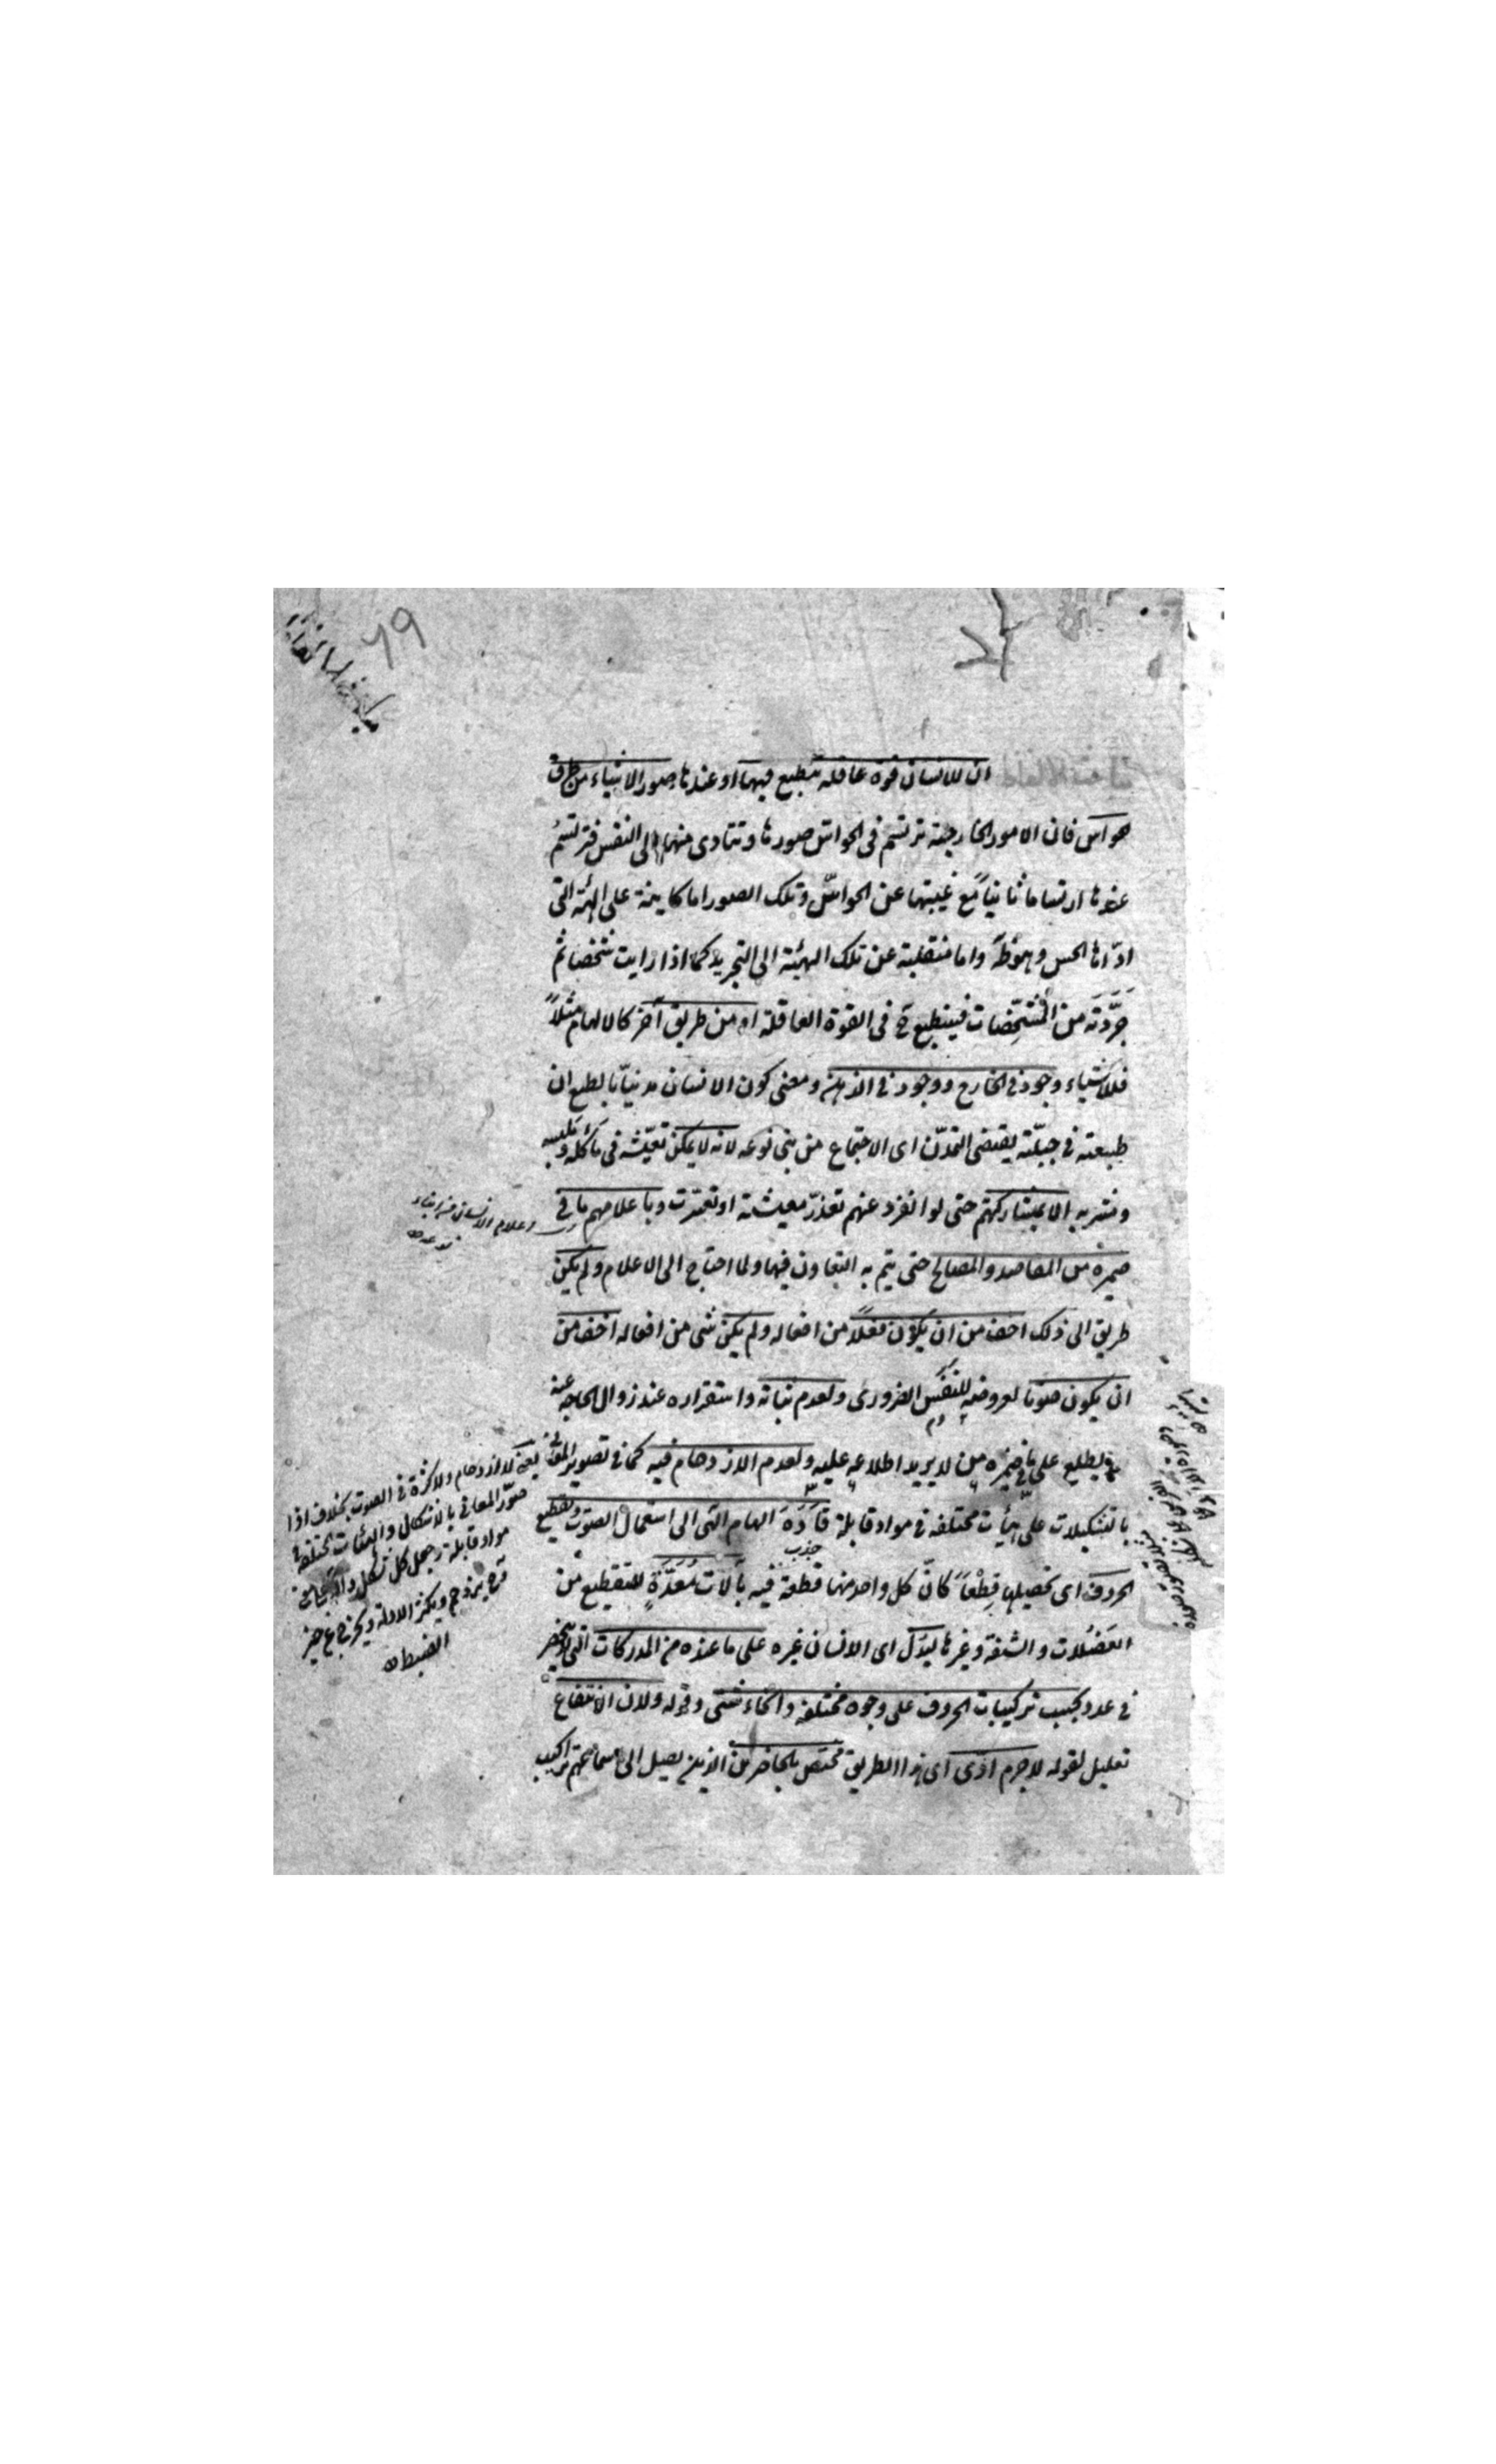 ٦٩
ان للانسان قوة عاقلة تنطبع فيها او عندها صور الاشياء من طرق
الحواس فان الامور الخارجية ترتسم فى الحواس صورها وتتادى منها الى النفس فترتسم
عندها ارتساما ثانيا مع غيبتها عن الحواس وتلك الصور اما كاينة على الهيئة التى
ادّاها الحس وهو ظ واما منتقلبة عن تلك الهيئة الى التجريد كما اذا رايت شخصا ثم
جرّدته من المشخّصات فينطبع ح فى القوة العاقلة او من طريق آخر كالالهام مثلاً
فللاشياء وجود فى الخارج ووجود فى الذهن ومعنى كون الانسان مدنيّا بالطبع ان
طبيعته فى جبلّته يقتضى التمدّن اى الاجتماع من بنى نوعه لانه لا يمكن تعيّشه فى مأكله وملبسه
ومشربه الا بمشاركتهم حتى لو انفرد عنهم تعذّر معيشته او تعسّرت وباعلامهم ما فى
ضميره من المقاصد والمصالح حتى يتم به التعاون فيها ولما احتاج الى الاعلام ولم يكن
طريق الى ذلك اخف من ان يكون فعلاً من افعاله ولم يكن شى من افعاله اخف من
ان يكون صوتا لعروضه للنَفَس الضرورى ولعدم ثباته واستقراره عند زوال الحاجة عنه
يطلع على ما فى ضميره من لا يريد اطلاعه عليه ولعدم الازدحام فيه كما فى تصوير المعانى
بالتشكيلات على هيأت مختلفة فى مواد قابلة قادَهَ الهام الهى الى استعمال الصوت وتقطيع
الحروف اى تحصيلها قِطَعاً كانّ كل واحد منها قطعة فيه بآلات مُعَدَّةٍ للتقطيع من
العَضَلات والشفة وغيرها ليدُل اى الانسان غيره على ما عنده من المدركات التى لا ينحصر
فى عدد بحسب تركيبات الحروف على وجوه مختلفة وانحاء شتى وقوله ولان الانتفاع
تعليل لقوله لاجرم ادّى اى هذا الطريق مختص بالحاضرين الذين يصل الى اسماعهم تراكيب
اعلام الانسان من ابناء
نوعه
يعنى لا ازدحام ولا كثرة فى الصوت بخلاف اذا
صوّر المعانى بالاشكال والهيئات المختلفة فى
مواد قابلة
ويكثر الادلة ويخرج عن حيّز
الضبط